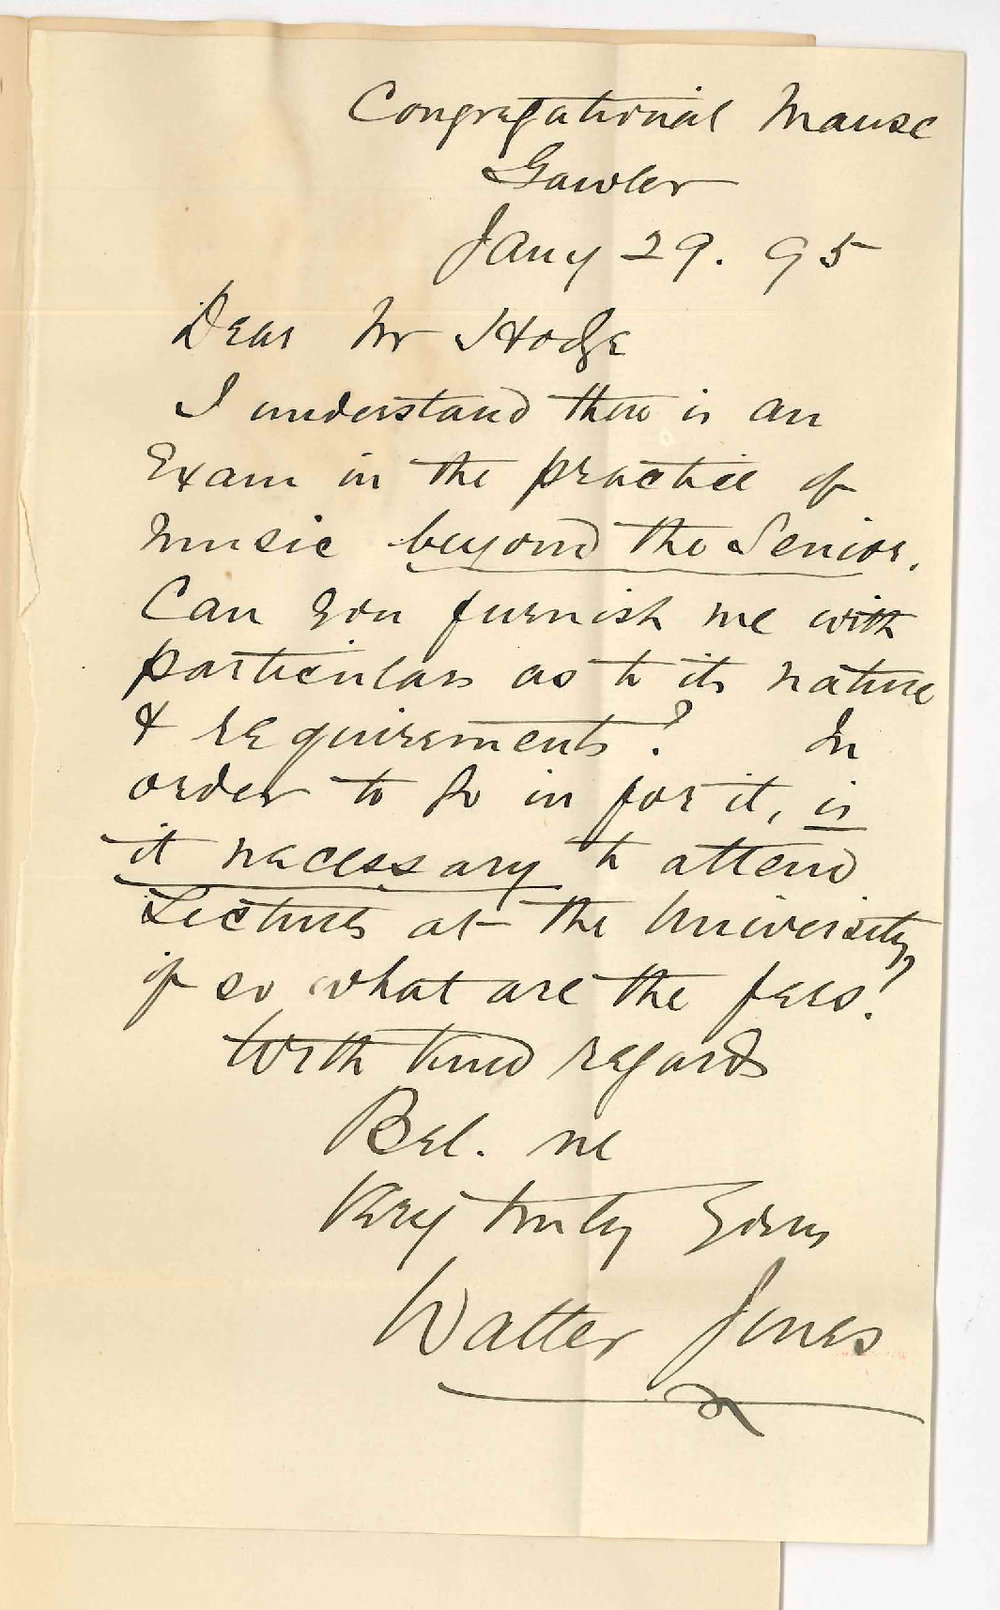 Congregational Manse
Gawler
Jany 29. 95
Dear Mr Hodge
I understand there is an
Exam in the practice of
Music beyond the Senior.
Can you furnish me with
particulars as to its nature
& requirements? In
order to go in for it, is
it necessary to attend
Lectures at the University,
if so what are the fees?
With kind regards
Bel. me
Very truly yours
Walter Jones